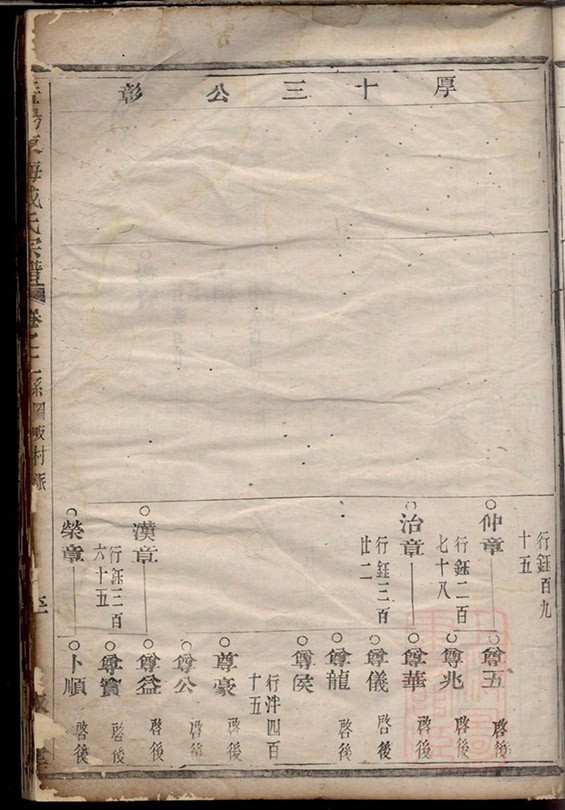 厚十三公彰
行鈺百九
十五
仲章
行鈺二百
七十八
治章
行鈺三百
廿二
漢章
行鈺三百
六十五
榮章
尊五 啓後
尊兆 啓後
尊華 啓後
尊儀 啓後
尊龍 啓後
尊侯
行泮四百
十五
尊豪 啓後
尊公 啓後
尊益 啓後
尊寳 啓後
卜順 啓後
東海成氏宗譜 卷之二 系圖 坂村派